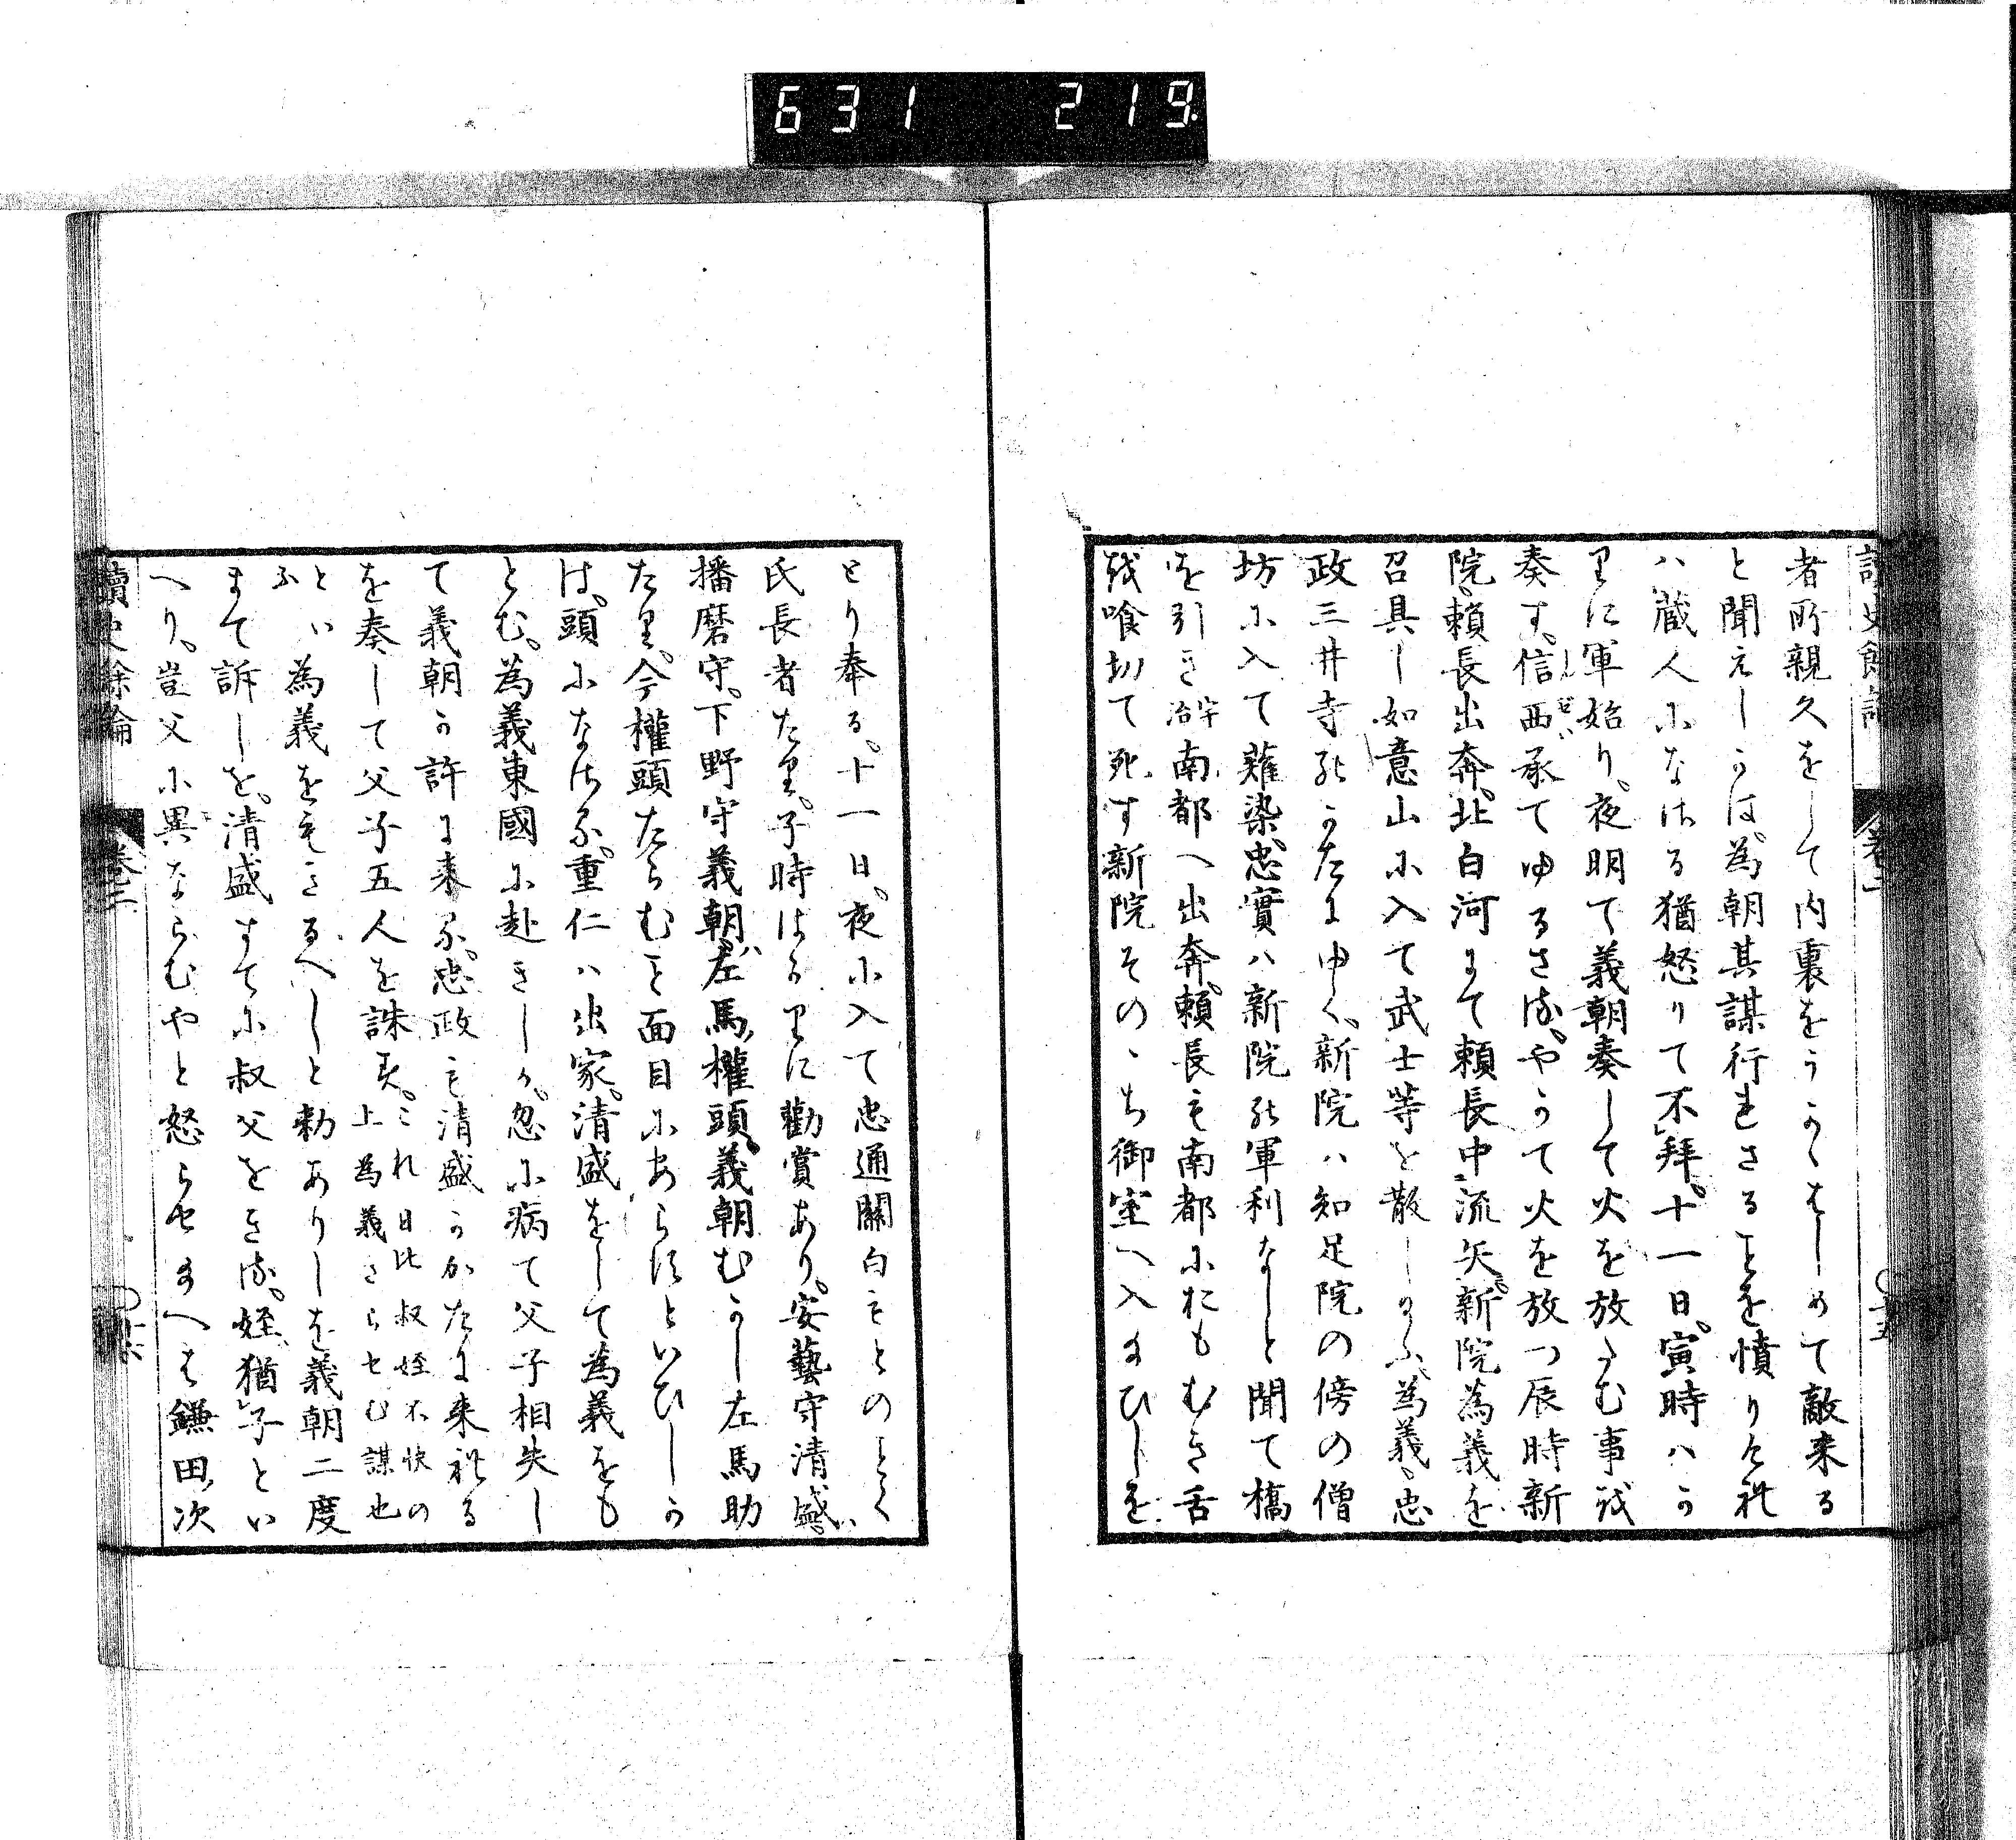 631 219
者所親久をして内裏をうかゝはしめて敵来る
と聞えしかは、為朝其謀行れさることを憤りけれ
ハ蔵人になさる猶怒りて不拜。十一日。寅時ハか
りに軍始り。夜明て義朝奏して火を放たむ事を
奏す。信西承てゆるさる。やかて火を放つ辰時新
しんせい
院、頼長出奔。北白河にて頼長中流矢。新院為義を
召具し如意山に入て武士等を散し給ふ。為義、忠
政三井寺のかたにゆく。新院ハ知足院の傍の僧
坊に入て薙染。忠實ハ新院の軍利なしと聞て橋
を引き宇治南都へ出奔。頼長も南都におもむき舌
を喰切て死す新院そのゝち御室へ入給ひしを
とり奉る。十一日。夜に入て忠通關白もとのことく
氏長者たり。子時はかりに勸賞あり。安藝守清盛。
播磨守。下野守義朝左馬權頭。義朝むかし左馬助
たり。今權頭たらむこと面目にあらすといひしか
は。頭になさる。重仁ハ出家。清盛をして為義をも
とむ。為義東國に赴きしか。忽に病て父子相失し
て義朝か許に来る。忠政も清盛かかたに来れる
を奏して父子五人を誅す。これ日比叔姪不快の
上為義きらせむ謀也
といふ為義をもきるへしと勅ありしを義朝二度
まて訴しを。清盛すてに叔父をきる。姪猶子とい
へり。豈父に異ならむやと怒らせ給へは鎌田次
讀史餘論 巻二